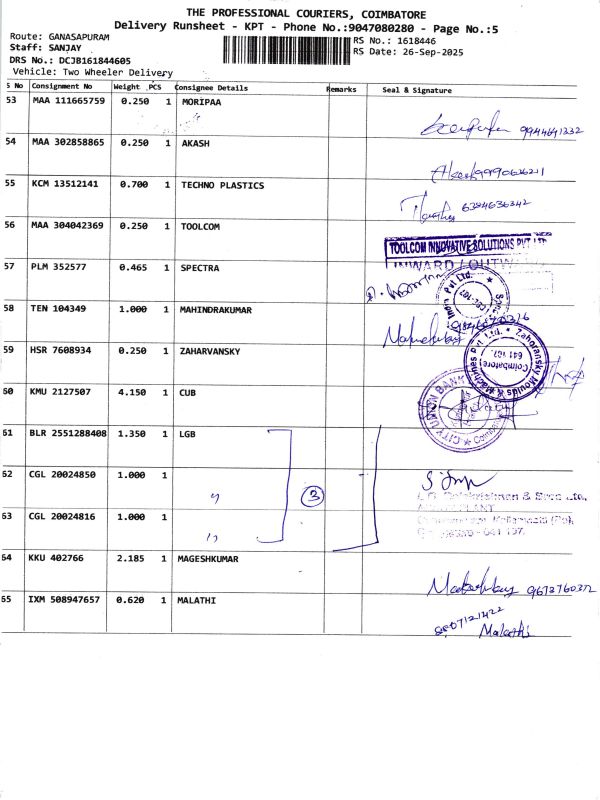 THE PROFESSIONAL COURIERS, COIMBATORE
Delivery Runsheet - KPT - Phone No.:9047080280 - Page No.:5
Route: GANASAPURAM
RS No.: 1618446
Staff: SANJAY
RS Date: 26-Sep-2025
DRS No.: DCJB161844605
Vehicle: Two Wheeler Delivery
S No Consignment No Weight PCS Consignee Details Remarks Seal & Signature
53 MAA 111665759 0.250 1 MORIPAA
9944641332
54 MAA 302858865 0.250 1 AKASH
55 KCM 13512141 0.700 1 TECHNO PLASTICS
6384636342
56 MAA 304042369 0.250 1 TOOLCOM
TOOLCOM INNOVATIVE SOLUTIONS PVT LTD
INWARD / OUTWARD
57 PLM 352577 0.465 1 SPECTRA
58 TEN 104349 1.000 1 MAHINDRAKUMAR
59 HSR 7608934 0.250 1 ZAHARVANSKY
Zahoransky Moulds & Machines Pvt. Ltd.
Coimbatore
60 KMU 2127507 4.150 1 CUB
CITY UNION BANK
61 BLR 2551288408 1.350 1 LGB
62 CGL 20024850 1.000 1 "
3
63 CGL 20024816 1.000 1 "
64 KKU 402766 2.185 1 MAGESHKUMAR
65 IXM 508947657 0.620 1 MALATHI
Malathi